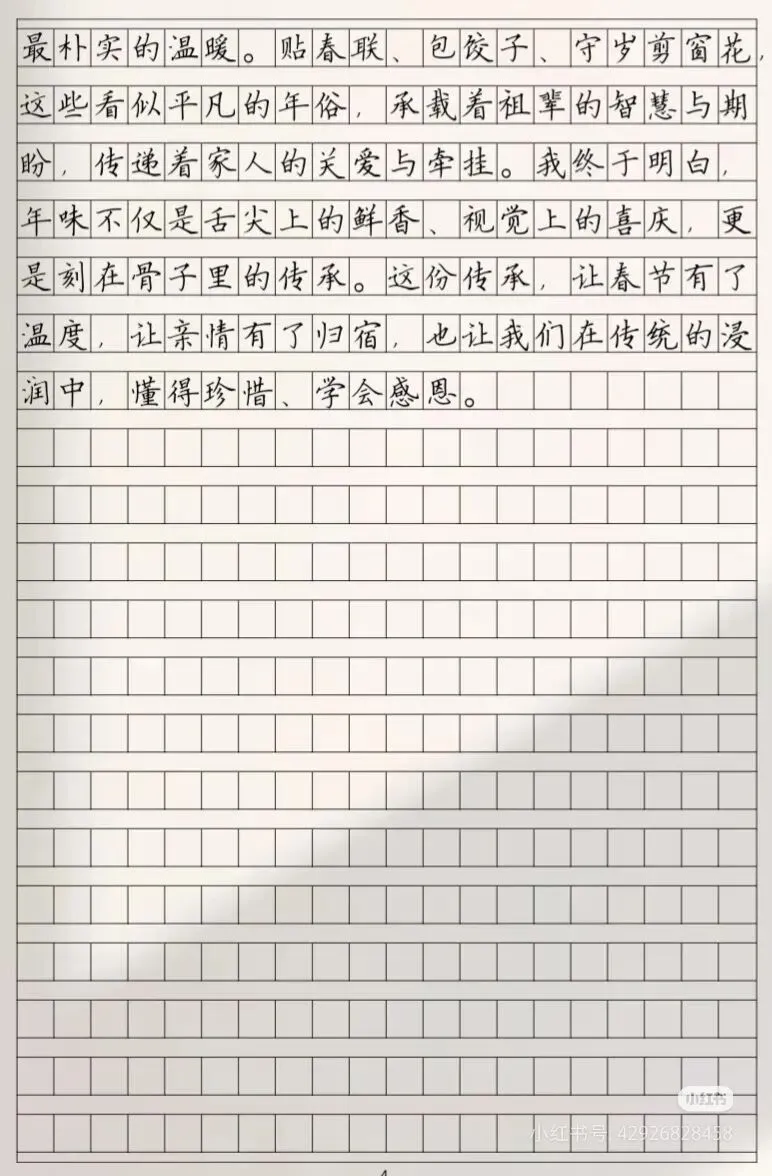 最朴实的温暖。贴春联、包饺子、守岁剪窗花，
这些看似平凡的年俗，承载着祖辈的智慧与期
盼，传递着家人的关爱与牵挂。我终于明白，
年味不仅是舌尖上的鲜香、视觉上的喜庆，更
是刻在骨子里的传承。这份传承，让春节有了
温度，让亲情有了归宿，也让我们在传统的浸
润中，懂得珍惜、学会感恩。
小红书
小红书号: 42926828458